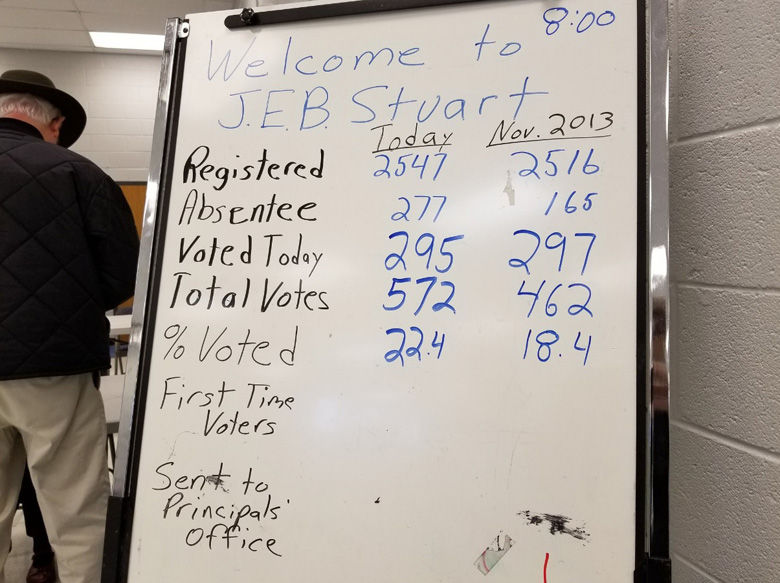 8:00
Welcome to
J.E.B. Stuart
Today Nov. 2013
Registered 2547 2516
Absentee 277 165
Voted Today 295 297
Total Votes 572 462
% Voted 22.4 18.4
First Time
Voters
Sent to
Principals'
Office